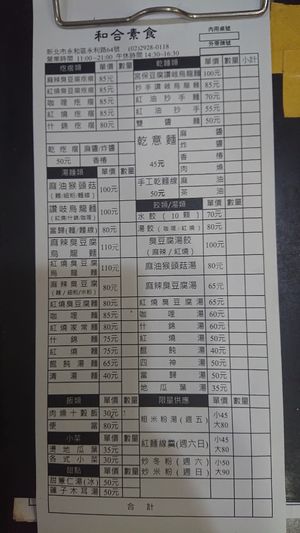 和合素食
內用桌號
外帶牌號
新北市永和區永利路64號 (02)2928-0118
營業時間 11:00~21:00 午休時間 14:30~16:30
疙瘩類 單價 數量
麻辣臭豆腐疙瘩 85元
紅燒臭豆腐疙瘩 85元
咖哩疙瘩 85元
紅燒疙瘩 85元
什錦疙瘩 80元
乾疙瘩 麻醬/炸醬
50元 香椿
湯麵類 單價 數量
麻油猴頭菇 100元
(麵/粉/麵線)
讚岐烏龍麵 100元
(紅燒/什錦/咖哩)
當歸(麵/麵線) 90元
麻辣臭豆腐烏龍麵 110元
紅燒臭豆腐烏龍麵 110元
麻辣臭豆腐 80元
(麵/細粉/米粉)
紅燒臭豆腐麵 80元
咖哩麵 85元
紅燒家常麵 80元
什錦麵 75元
紅燒麵 75元
餛飩湯麵 65元
清湯麵 40元
飯類 單價 數量
肉燥十穀飯 30元
便當 80元
小菜 單價 數量
燙地瓜葉 35元
各式小菜 30元
甜點 單價 數量
甜薏仁湯(冰) 50元
蓮子木耳湯 50元
乾麵類 單價 數量 小計
宮保豆腐讚岐烏龍麵 100元
抄手讚岐烏龍麵 85元
紅油抄手麵 70元
紅油抄手 55元
雙醬麵 50元
乾意麵
45元
麻醬
炸醬
香椿
肉燥
手工乾麵線 麻油
50元 茶油
餃類/湯類 單價 數量
水餃(10顆) 70元
湯餃(咖哩/紅燒) 80元
臭豆腐湯餃 80元
(麻辣/紅燒)
麻油猴頭菇湯 80元
麻辣臭豆腐湯 65元
紅燒臭豆腐湯 65元
咖哩湯 60元
什錦湯 60元
紅燒湯 50元
餛飩湯 40元
四神湯 55元
當歸湯 50元
地瓜葉湯 35元
限量供應 單價 數量
粗米粉湯(週五) 小45
大80
紅麵線羹(週六日) 小45
大80
炒冬粉(週六) 小50
炒米粉(週日) 大90
合計